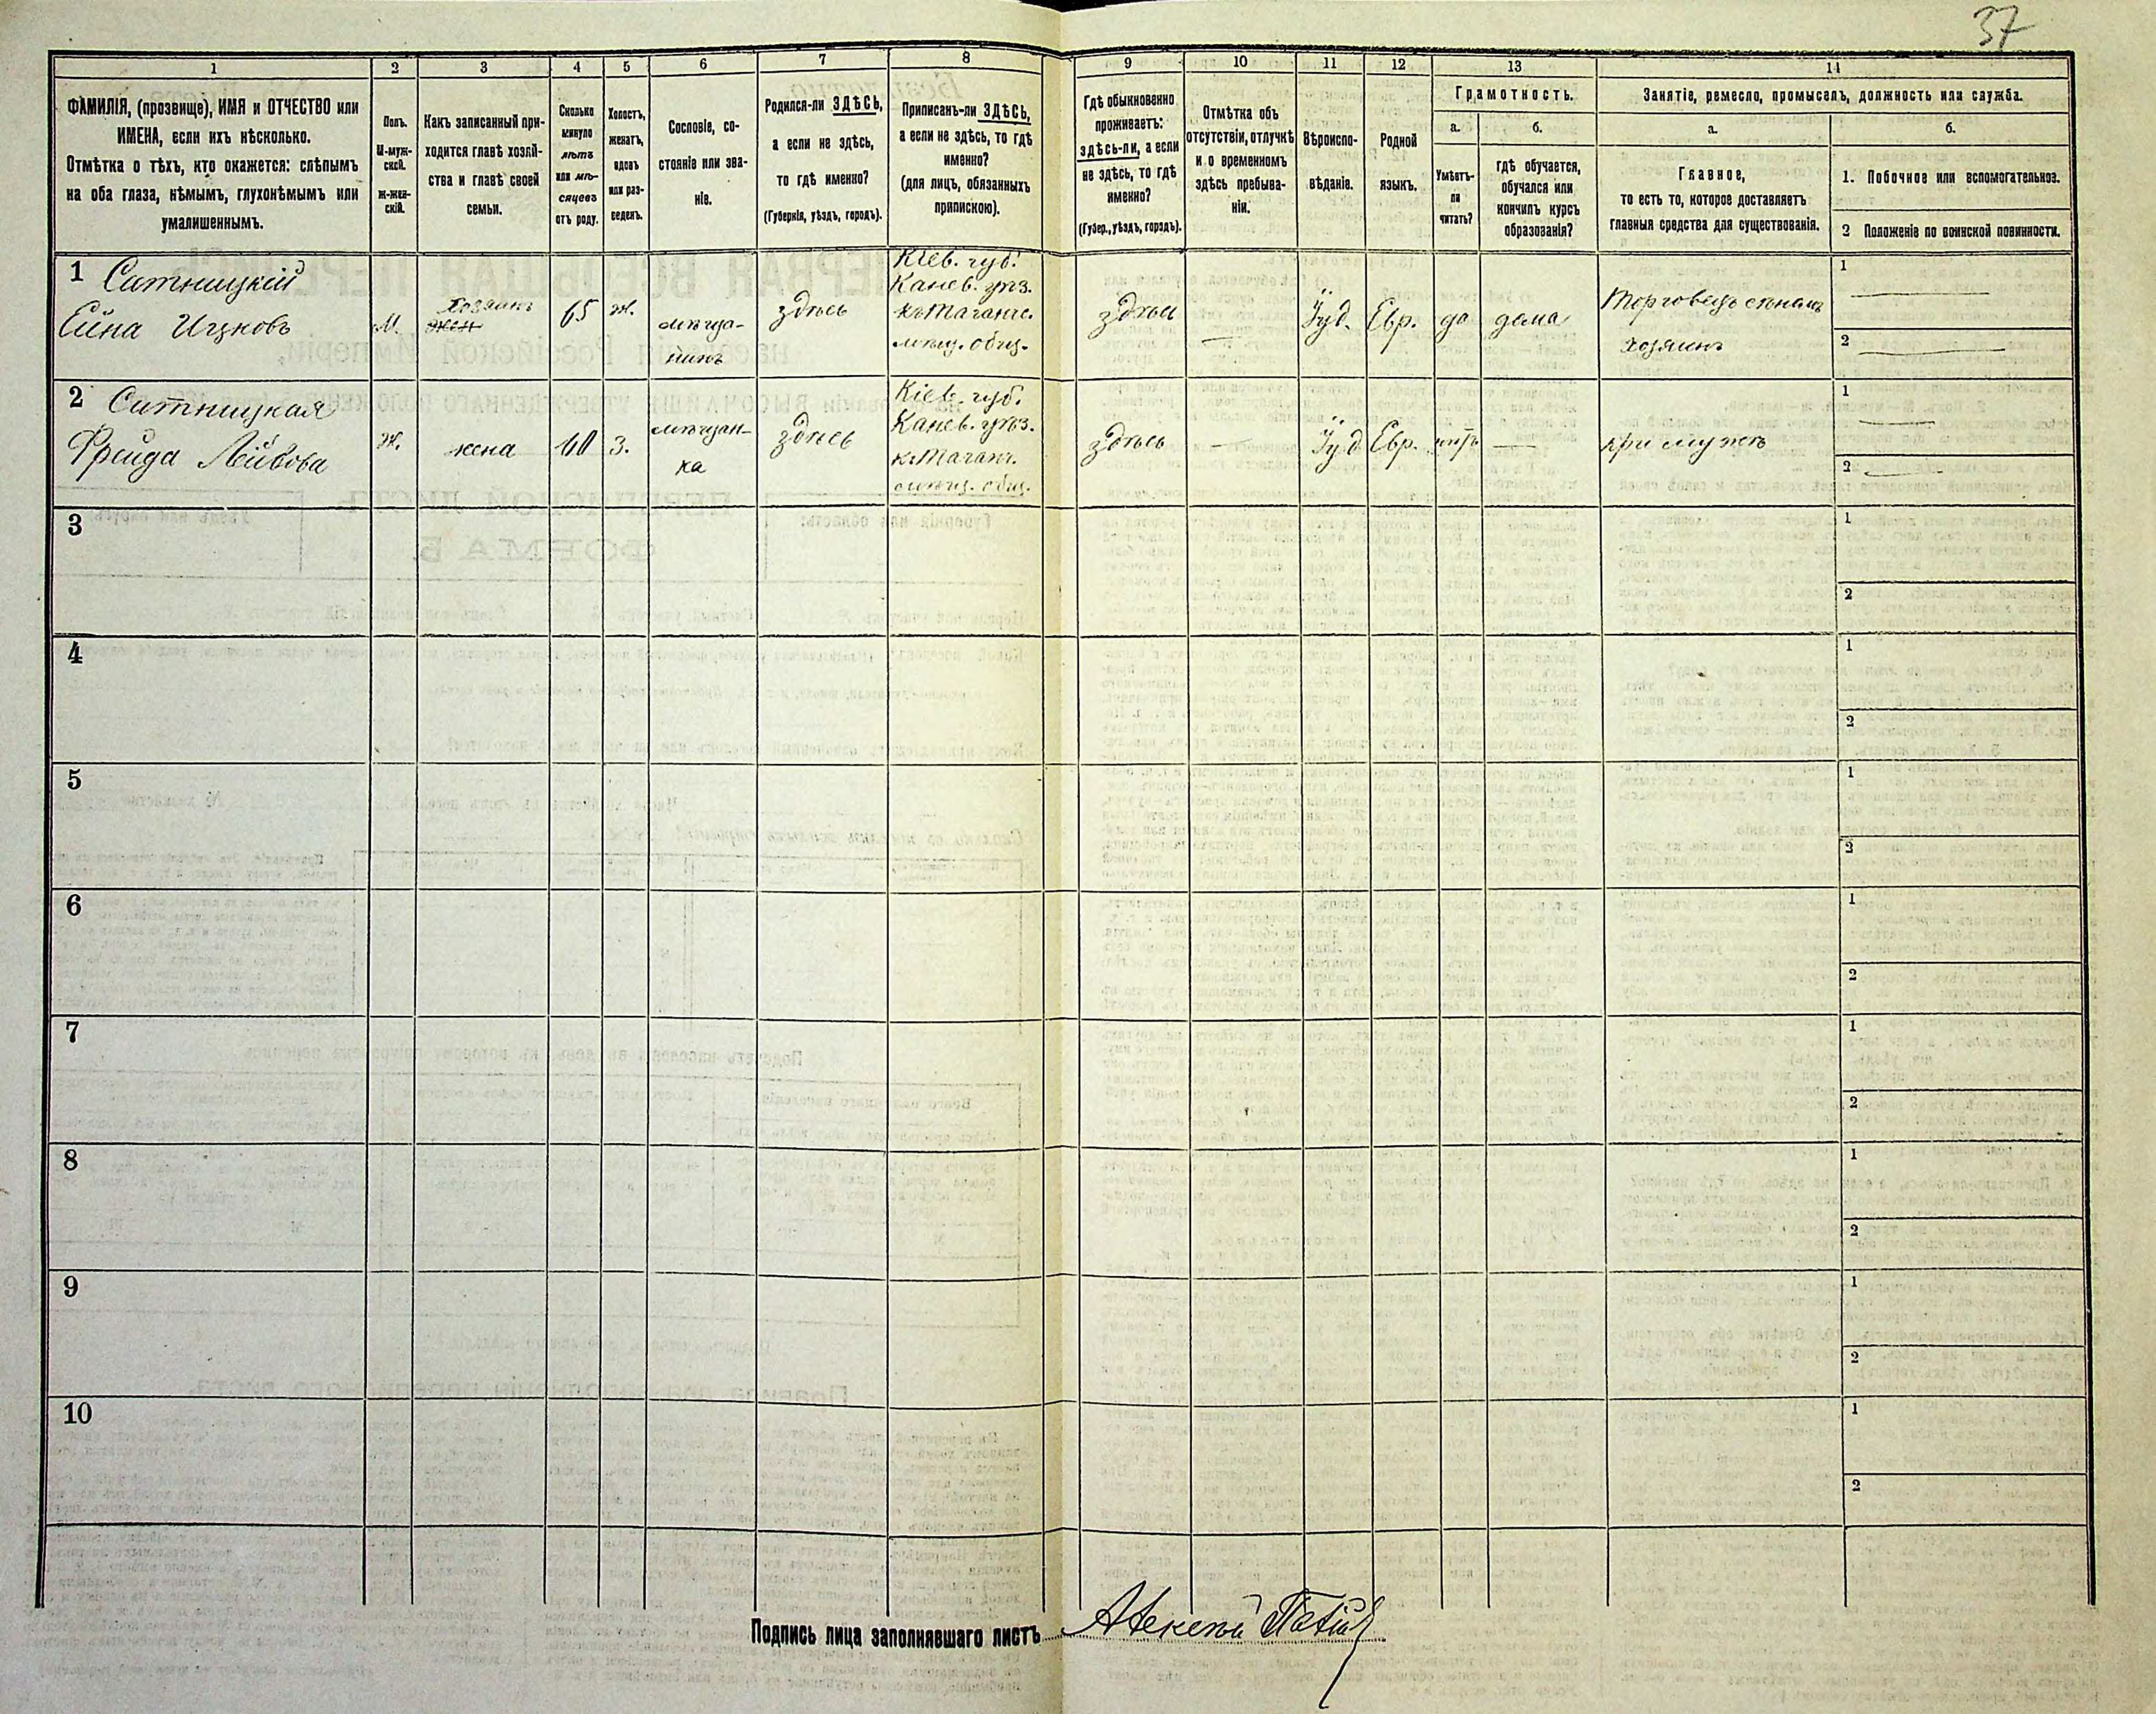 37
1
2
3
4
5
6
7
8
9
10
11
12
13
14
ФАМИЛІЯ, (прозвище), ИМЯ и ОТЧЕСТВО или
ИМЕНА, если ихъ нѣсколько.
Отмѣтка о тѣхъ, кто окажется: слѣпымъ
на оба глаза, нѣмымъ, глухонѣмымъ или
умалишеннымъ.
Полъ.
М-муж-
ской.
Ж-жен-
скій.
Какъ записанный при-
ходится главѣ хозяй-
ства и главѣ своей
семьи.
Сколько
минуло
лѣтъ
или мѣ-
сяцевъ
отъ роду.
Холостъ,
женатъ,
вдовъ
или раз-
веденъ.
Сословіе, со-
стояніе или зва-
ніе.
Родился-ли ЗДѢСЬ,
а если не здѣсь,
то гдѣ именно?
(Губернія, уѣздъ, городъ).
Приписанъ-ли ЗДѢСЬ,
а если не здѣсь, то гдѣ
именно?
(для лицъ, обязанныхъ
припискою).
Гдѣ обыкновенно
проживаетъ:
здѣсь-ли, а если
не здѣсь, то гдѣ
именно?
(Губер., уѣздъ, городъ).
Отмѣтка объ
отсутствіи, отлучкѣ
и о временномъ
здѣсь пребыва-
ніи.
Вѣроиспо-
вѣданіе.
Родной
языкъ.
Грамотность.
а.
Умѣетъ-
ли
читать?
б.
гдѣ обучается,
обучался или
кончилъ курсъ
образованія?
Занятіе, ремесло, промыселъ, должность или служба.
а.
Главное,
то есть то, которое доставляетъ
главныя средства для существованія.
б.
1. Побочное или вспомогательное.
2 Положеніе по воинской повинности.
1 Ситницкій
Ейна Ицковъ
М.
хозяинъ
жен
65
ж.
мѣща-
нинъ
здѣсь
Кіев. губ.
Канев. уѣз.
мѣщ. общ.
здѣсь
Іуд.
Евр.
да
дома
Торговецъ сѣномъ
хозяинъ
1
2
2 Ситницкая
Фрейда Лейбова
Ж.
жена
60
З.
мѣщан-
ка
здѣсь
Кіев. губ.
Канев. уѣз.
мѣщ. общ.
здѣсь
Іуд.
Евр.
нѣтъ
при мужѣ
1
2
3
1
2
4
1
2
5
1
2
6
1
2
7
1
2
8
1
2
9
1
2
10
1
2
Подпись лица заполнявшаго листъ